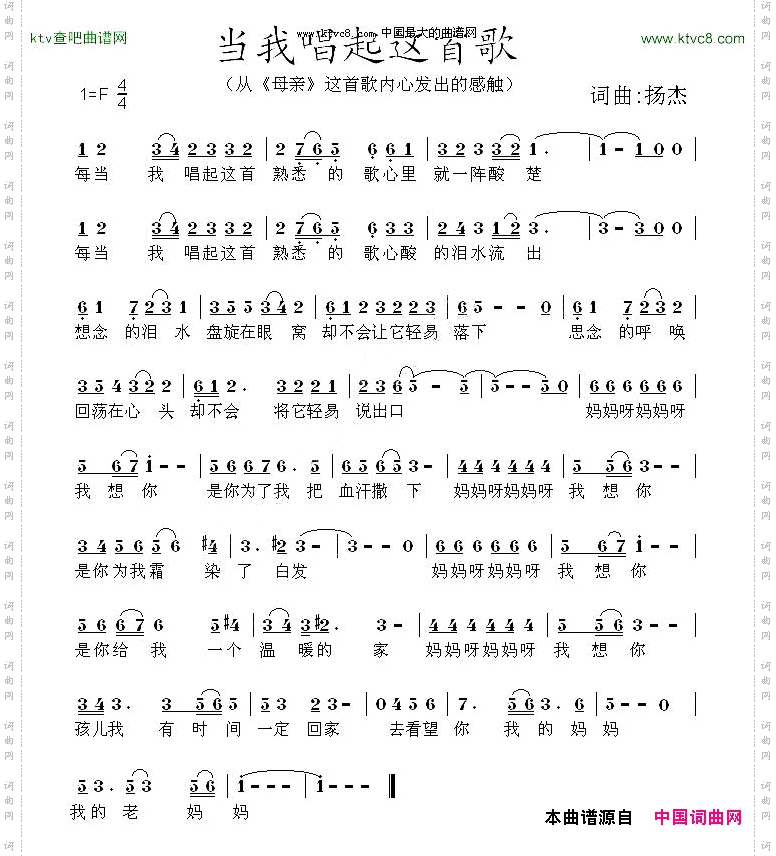 ktv查吧曲谱网
www.ktvc8.com 中国最大的曲谱网
www.ktvc8.com
当我唱起这首歌
（从《母亲》这首歌内心发出的感触）
1=F 4/4
词曲:扬杰
1 2 3 4 2 3 3 2 2 7 6 5 6 6 1 | 3 2 3 3 2 1. | 1 - 1 0 0
每当 我 唱起这首 熟悉 的 歌心里 就一阵酸 楚
1 2 3 4 2 3 3 2 2 7 6 5 6 3 3 | 2 4 3 1 2 3. | 3 - 3 0 0
每当 我 唱起这首 熟悉 的 歌心酸 的泪水流 出
6 1 7 2 3 1 | 3 5 5 3 4 2 | 6 1 2 3 2 2 3 | 6 5 - - 0 | 6 1 7 2 3 1 |
想念 的泪 水 盘旋在眼 窝 却不会让它轻易 落下 思念 的呼 唤
3 5 4 3 2 2 | 6 1 2. 3 2 2 1 | 2 3 6 5 - 5 | 5 - - 5 0 | 6 6 6 6 6 6 |
回荡在心 头 却不会 将它轻易 说出口 妈妈呀妈妈呀
5 6 7 1 - - | 5 6 6 7 6 6. 5 | 6 5 6 5 3 - | 4 4 4 4 4 4 | 5 5 6 3 - - |
我 想 你 是你为了我 把 血汗撒 下 妈妈呀妈妈呀 我 想 你
3 4 5 6 5 6 #4 | 3. #2 3 - | 3 - - 0 | 6 6 6 6 6 6 | 5 6 7 1 - - |
是你为我霜 染 了 白发 妈妈呀妈妈呀 我 想 你
5 6 6 7 6 5 #4 | 3 4 3 #2. 3 - | 4 4 4 4 4 4 | 5 5 6 3 - - |
是你给 我 一个 温 暖的 家 妈妈呀妈妈呀 我 想 你
3 4 3. 3 5 6 5 | 5 3 2 3 - | 0 4 5 6 | 7. 5 6 3. 6 | 5 - - 0 |
孩儿我 有 时 间 一定 回家 去看望 你 我 的 妈 妈
5 3. 5 3 5 6 | 1 - - | 1 - - ‖
我的 老 妈 妈
本曲谱源自 中国词曲网